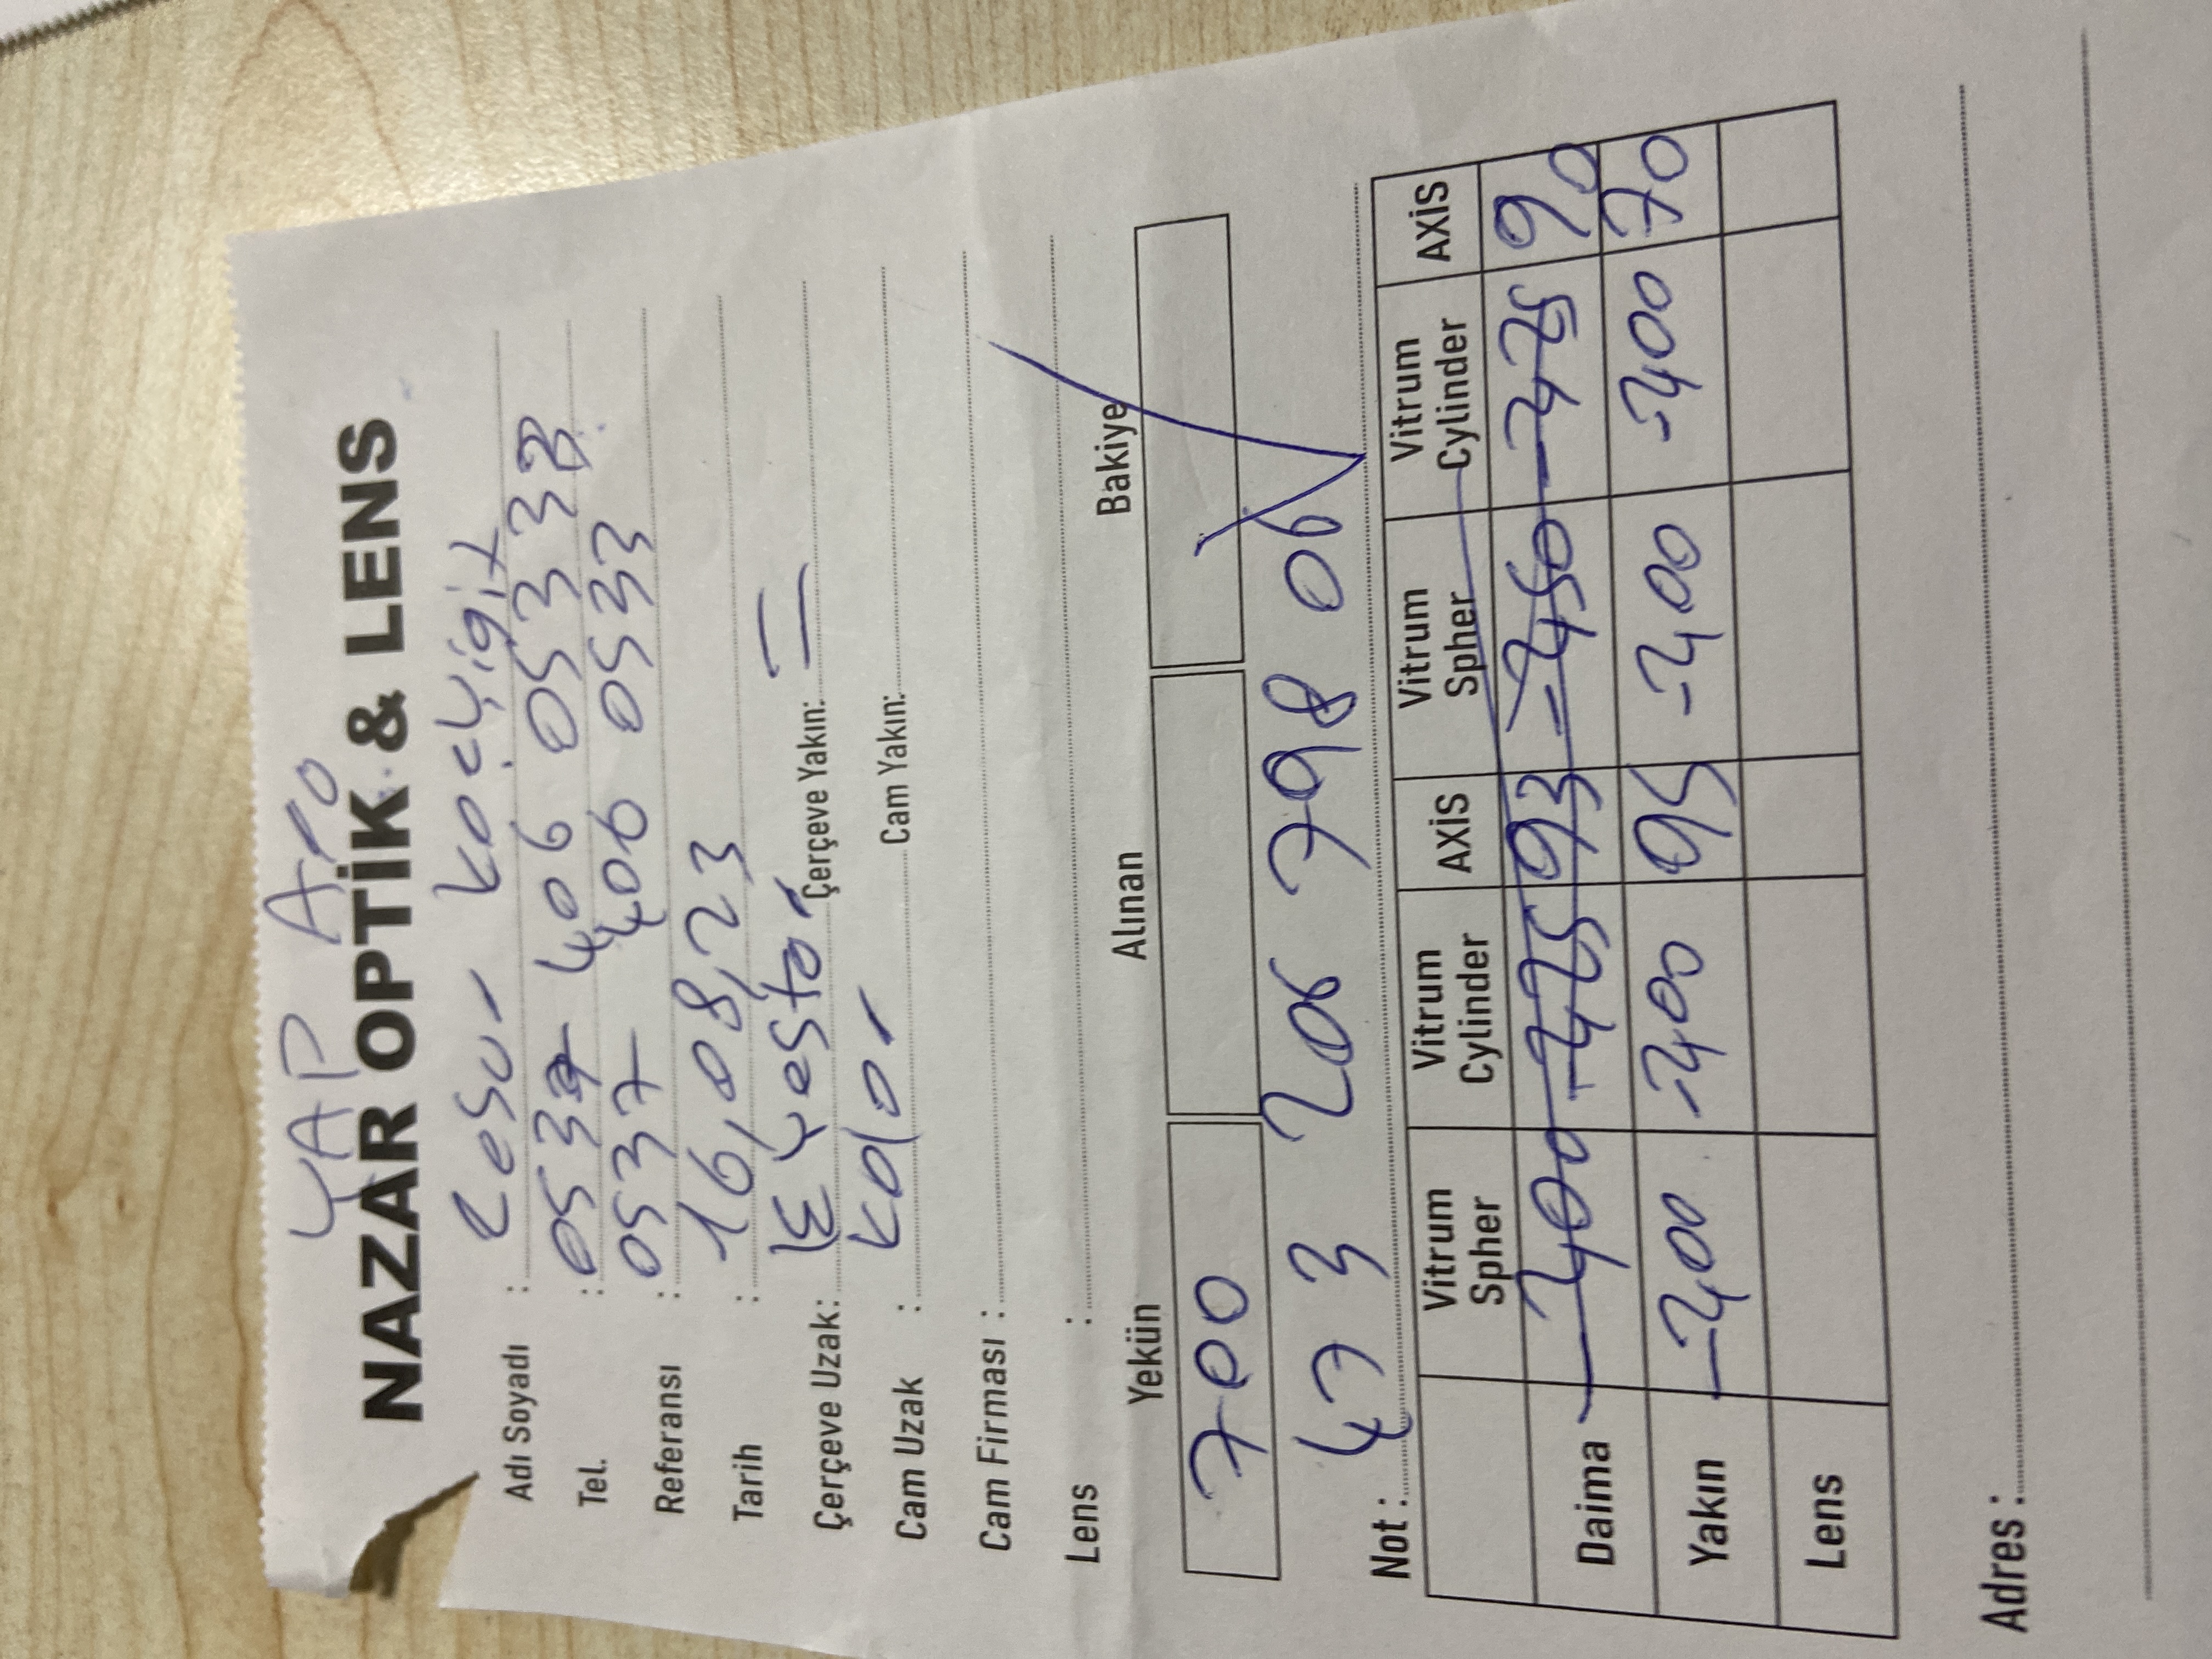 YAP Ara
NAZAR OPTİK & LENS
Adı Soyadı : Cesur Koçyiğit
Tel. : 0537 406 0533
Referansı : 0537 406 0533
Tarih : 16,08,23
Çerçeve Uzak: Çerçeve Yakın: =
Cam Uzak : Kolor Cam Yakın:
Cam Firması :
Lens :
Yekün Alınan Bakiye
700
Not : 473 206 798 06
Vitrum Spher Vitrum Cylinder AXİS Vitrum Spher Vitrum Cylinder AXİS
Daima 93 90
Yakın -200 -200 95 -200 -200 70
Lens
Adres :